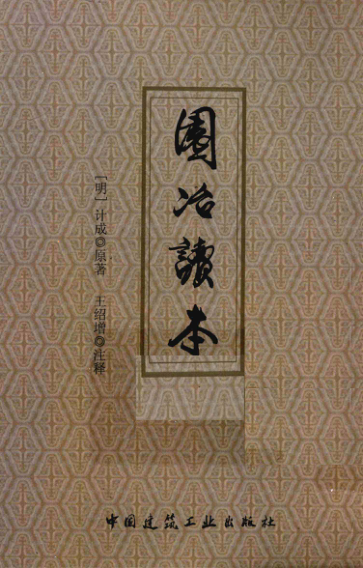 園冶讀本
[明]计成◎原著 王绍增◎注释
中国建筑工业出版社